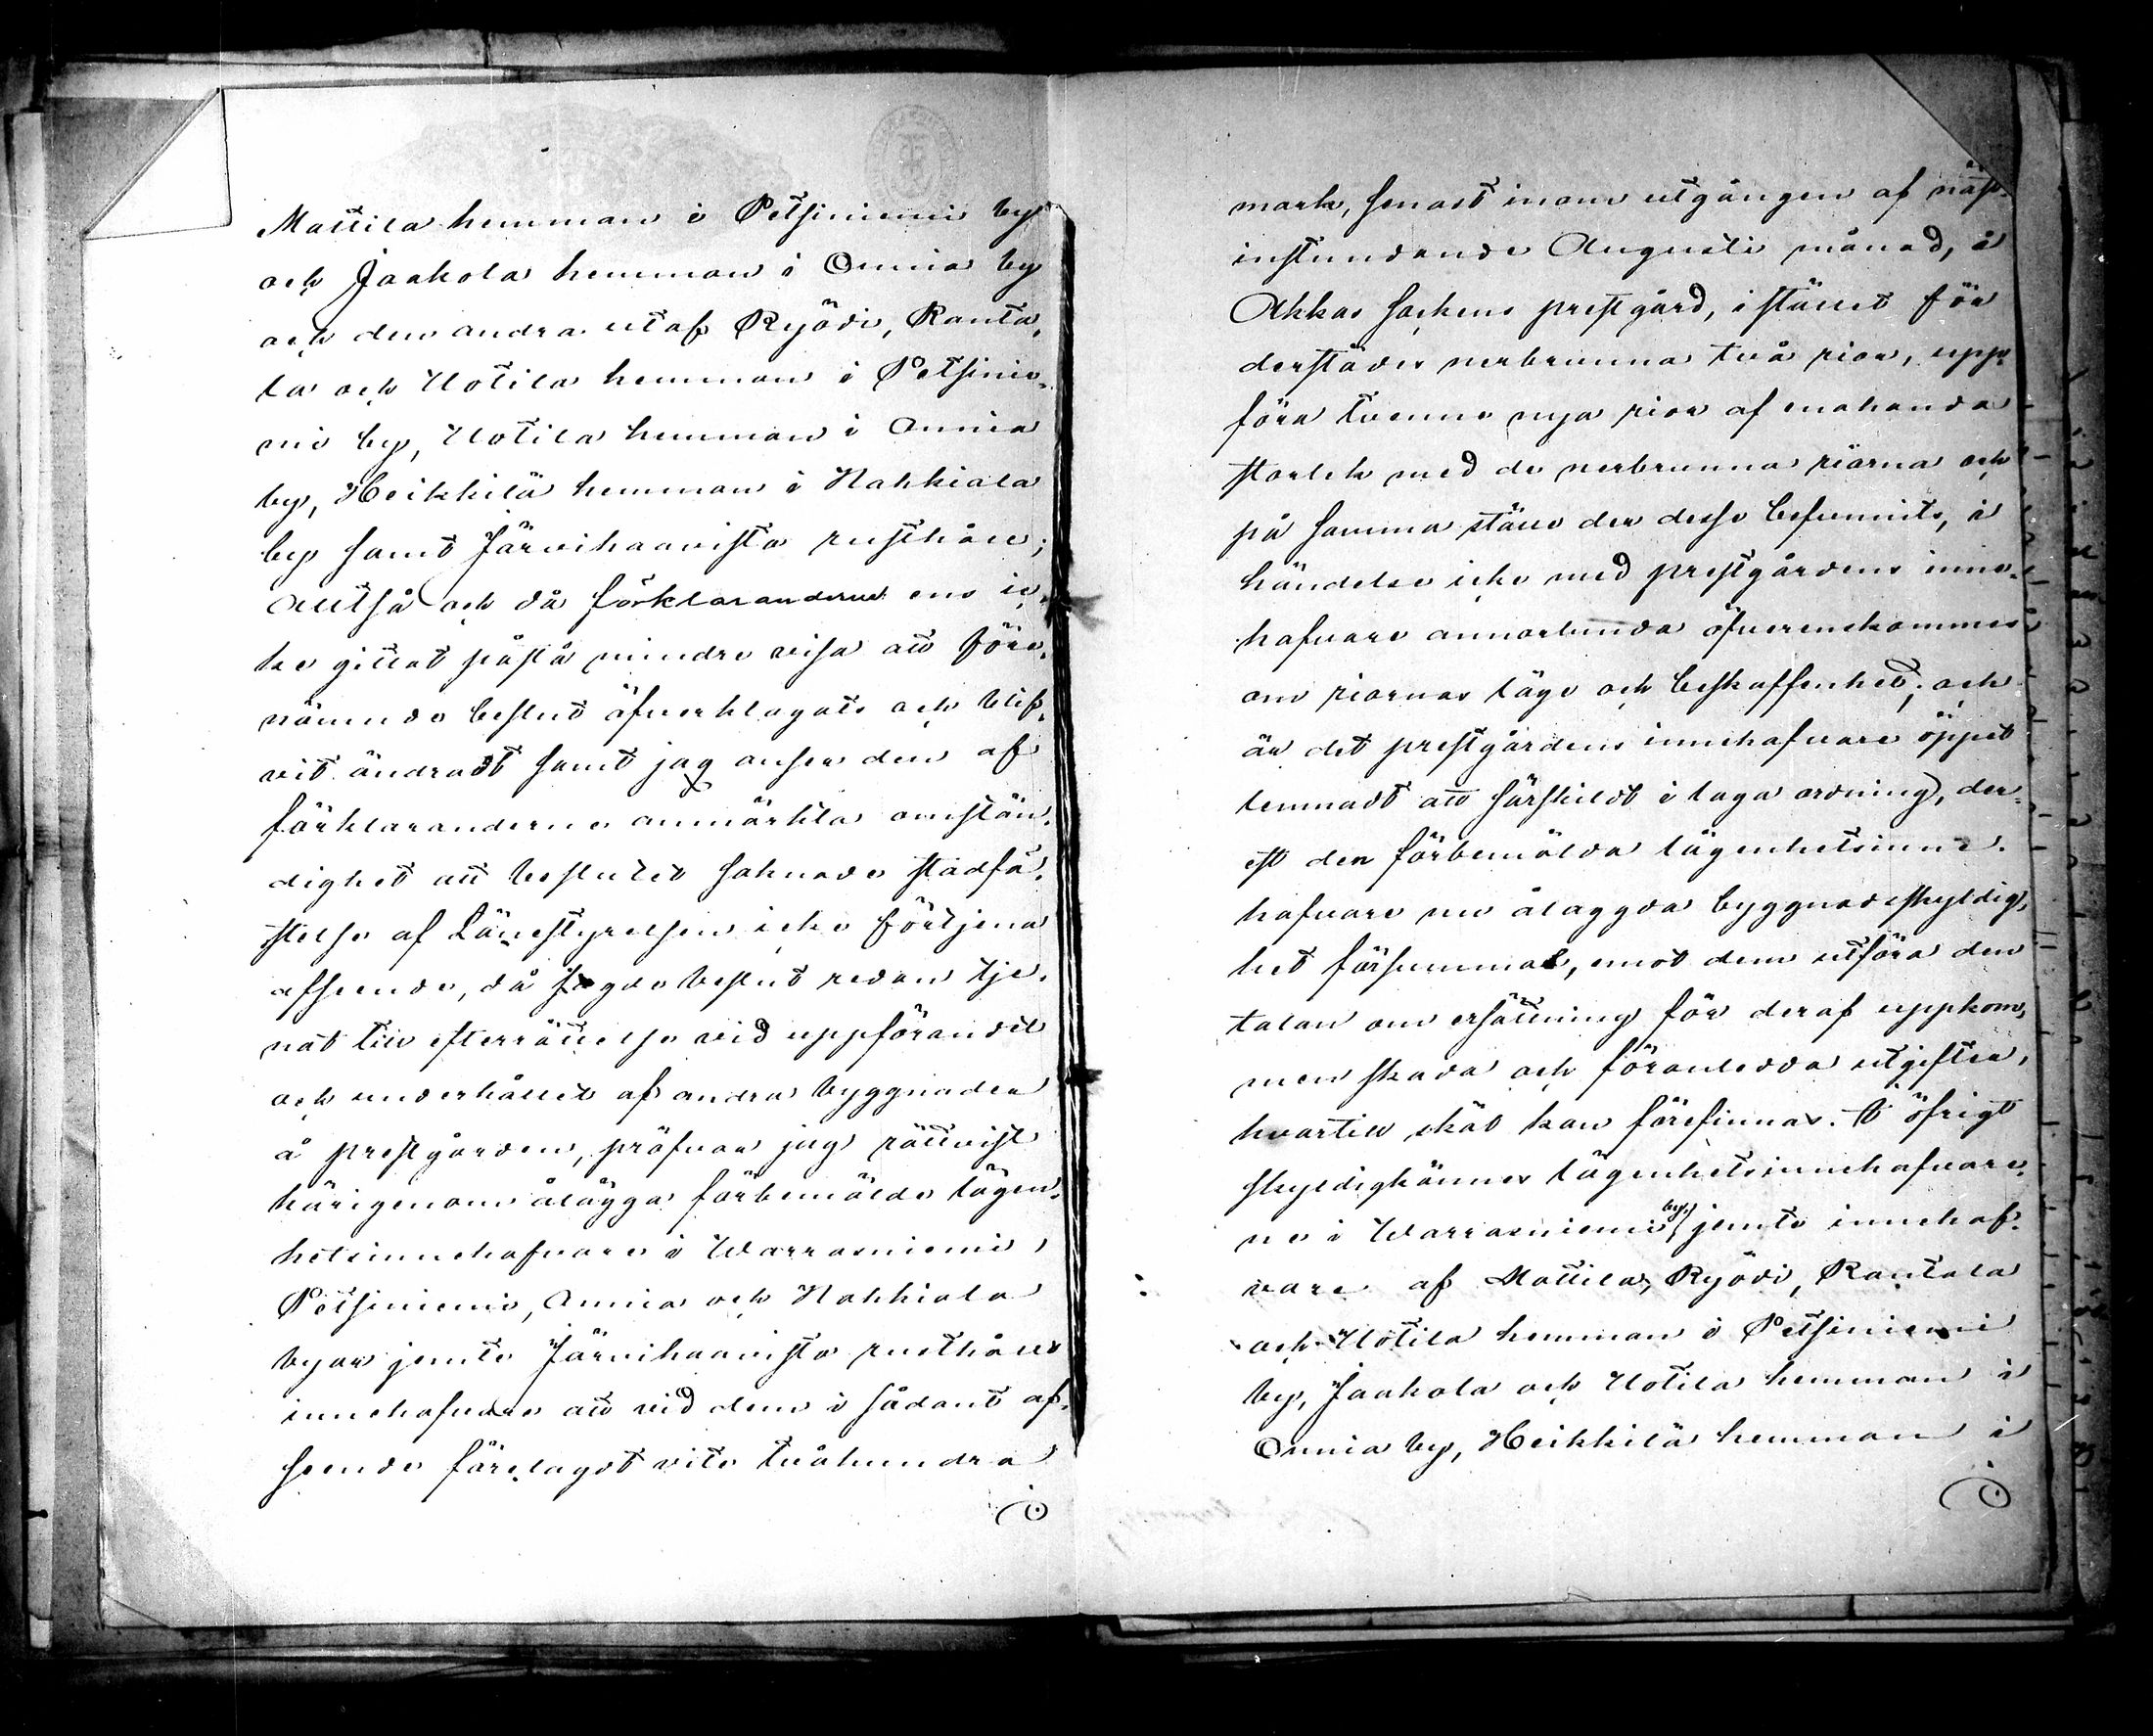 Mattila hemman i Petsiniemi by
och Jaakola hemman i Onnia by
och den andra utaf Ryödi, Ranta-
la och Uotila hemman i Petsinie-
mi by, Uotila hemman i Onnia
by, Heikkilä hemman i Nahkiala
by samt Järvihaavisto rusthåll;
Alltså och då förklaranderne ens ic-
ke gittat påstå mindre visa att före-
nämnde beslut öfverklagats och blif-
vit ändradt samt jag anser den af
förklaranderne anmärkta omstän-
dighet att beslutet saknade stadfä-
stelse af Länestyrelsen icke förtjena
afseende, då sagde beslut redan tje-
nat till efterrättelse vid uppförandet
och underhållet af andra byggnader
å prestgården, pröfvar jag rättvist
härigenom ålägga förbemälde lägen-
hetsinnehafvare i Warrasniemi,
Petsiniemi, Onnia och Nahkiala
byar jemte Järvihaavisto rusthålls
innehafvare att vid dem i sådant af-
seende förelagdt vite tvåhundra
mark, senast inom utgången af näst-
instundande Augusti månad, å
Akkas Sockens prestgård, i stället för
derstädes nerbrunna två rior, upp-
föra tvenne nya rior af enahanda
storlek med de nerbrunna riorna och
på samma ställe der desse befunnits, i
händelse icke med prestgårdens inne-
hafvare annorlunda öfverenskommes
om riornas läge och beskaffenhet; och
är det prestgårdens innehafvare öppet
lemnadt att särskildt i laga ordning, der-
est den förbemälda lägenhetsinne-
hafvare nu ålaggda byggnadsskyldig-
het försummas, emot dem utföra den
talan om ersättning för deraf uppkom-
men skada och föranledda utgifter,
hvartill skäl kan förefinnas. I öfrigt
skyldigkännes lägenhetsinnehafvare-
ne i Warrasniemi by, jemte innehaf-
vare af Mattila, Ryödi, Rantala
och Uotila hemman i Petsiniemi
by, Jaakola och Uotila hemman i
Onnia by, Heikkilä hemman i